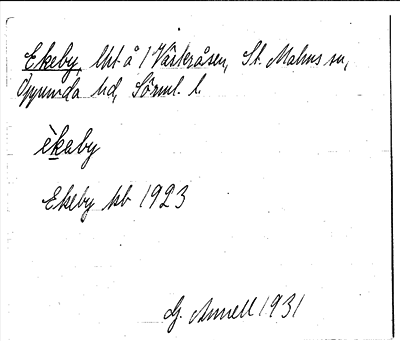 Ekeby, lht å 1 Västeråsen, St. Malms sn,
Oppunda hd, Sörml. l.
èkaby
Ekeby kb 1923
G. Annell 1931